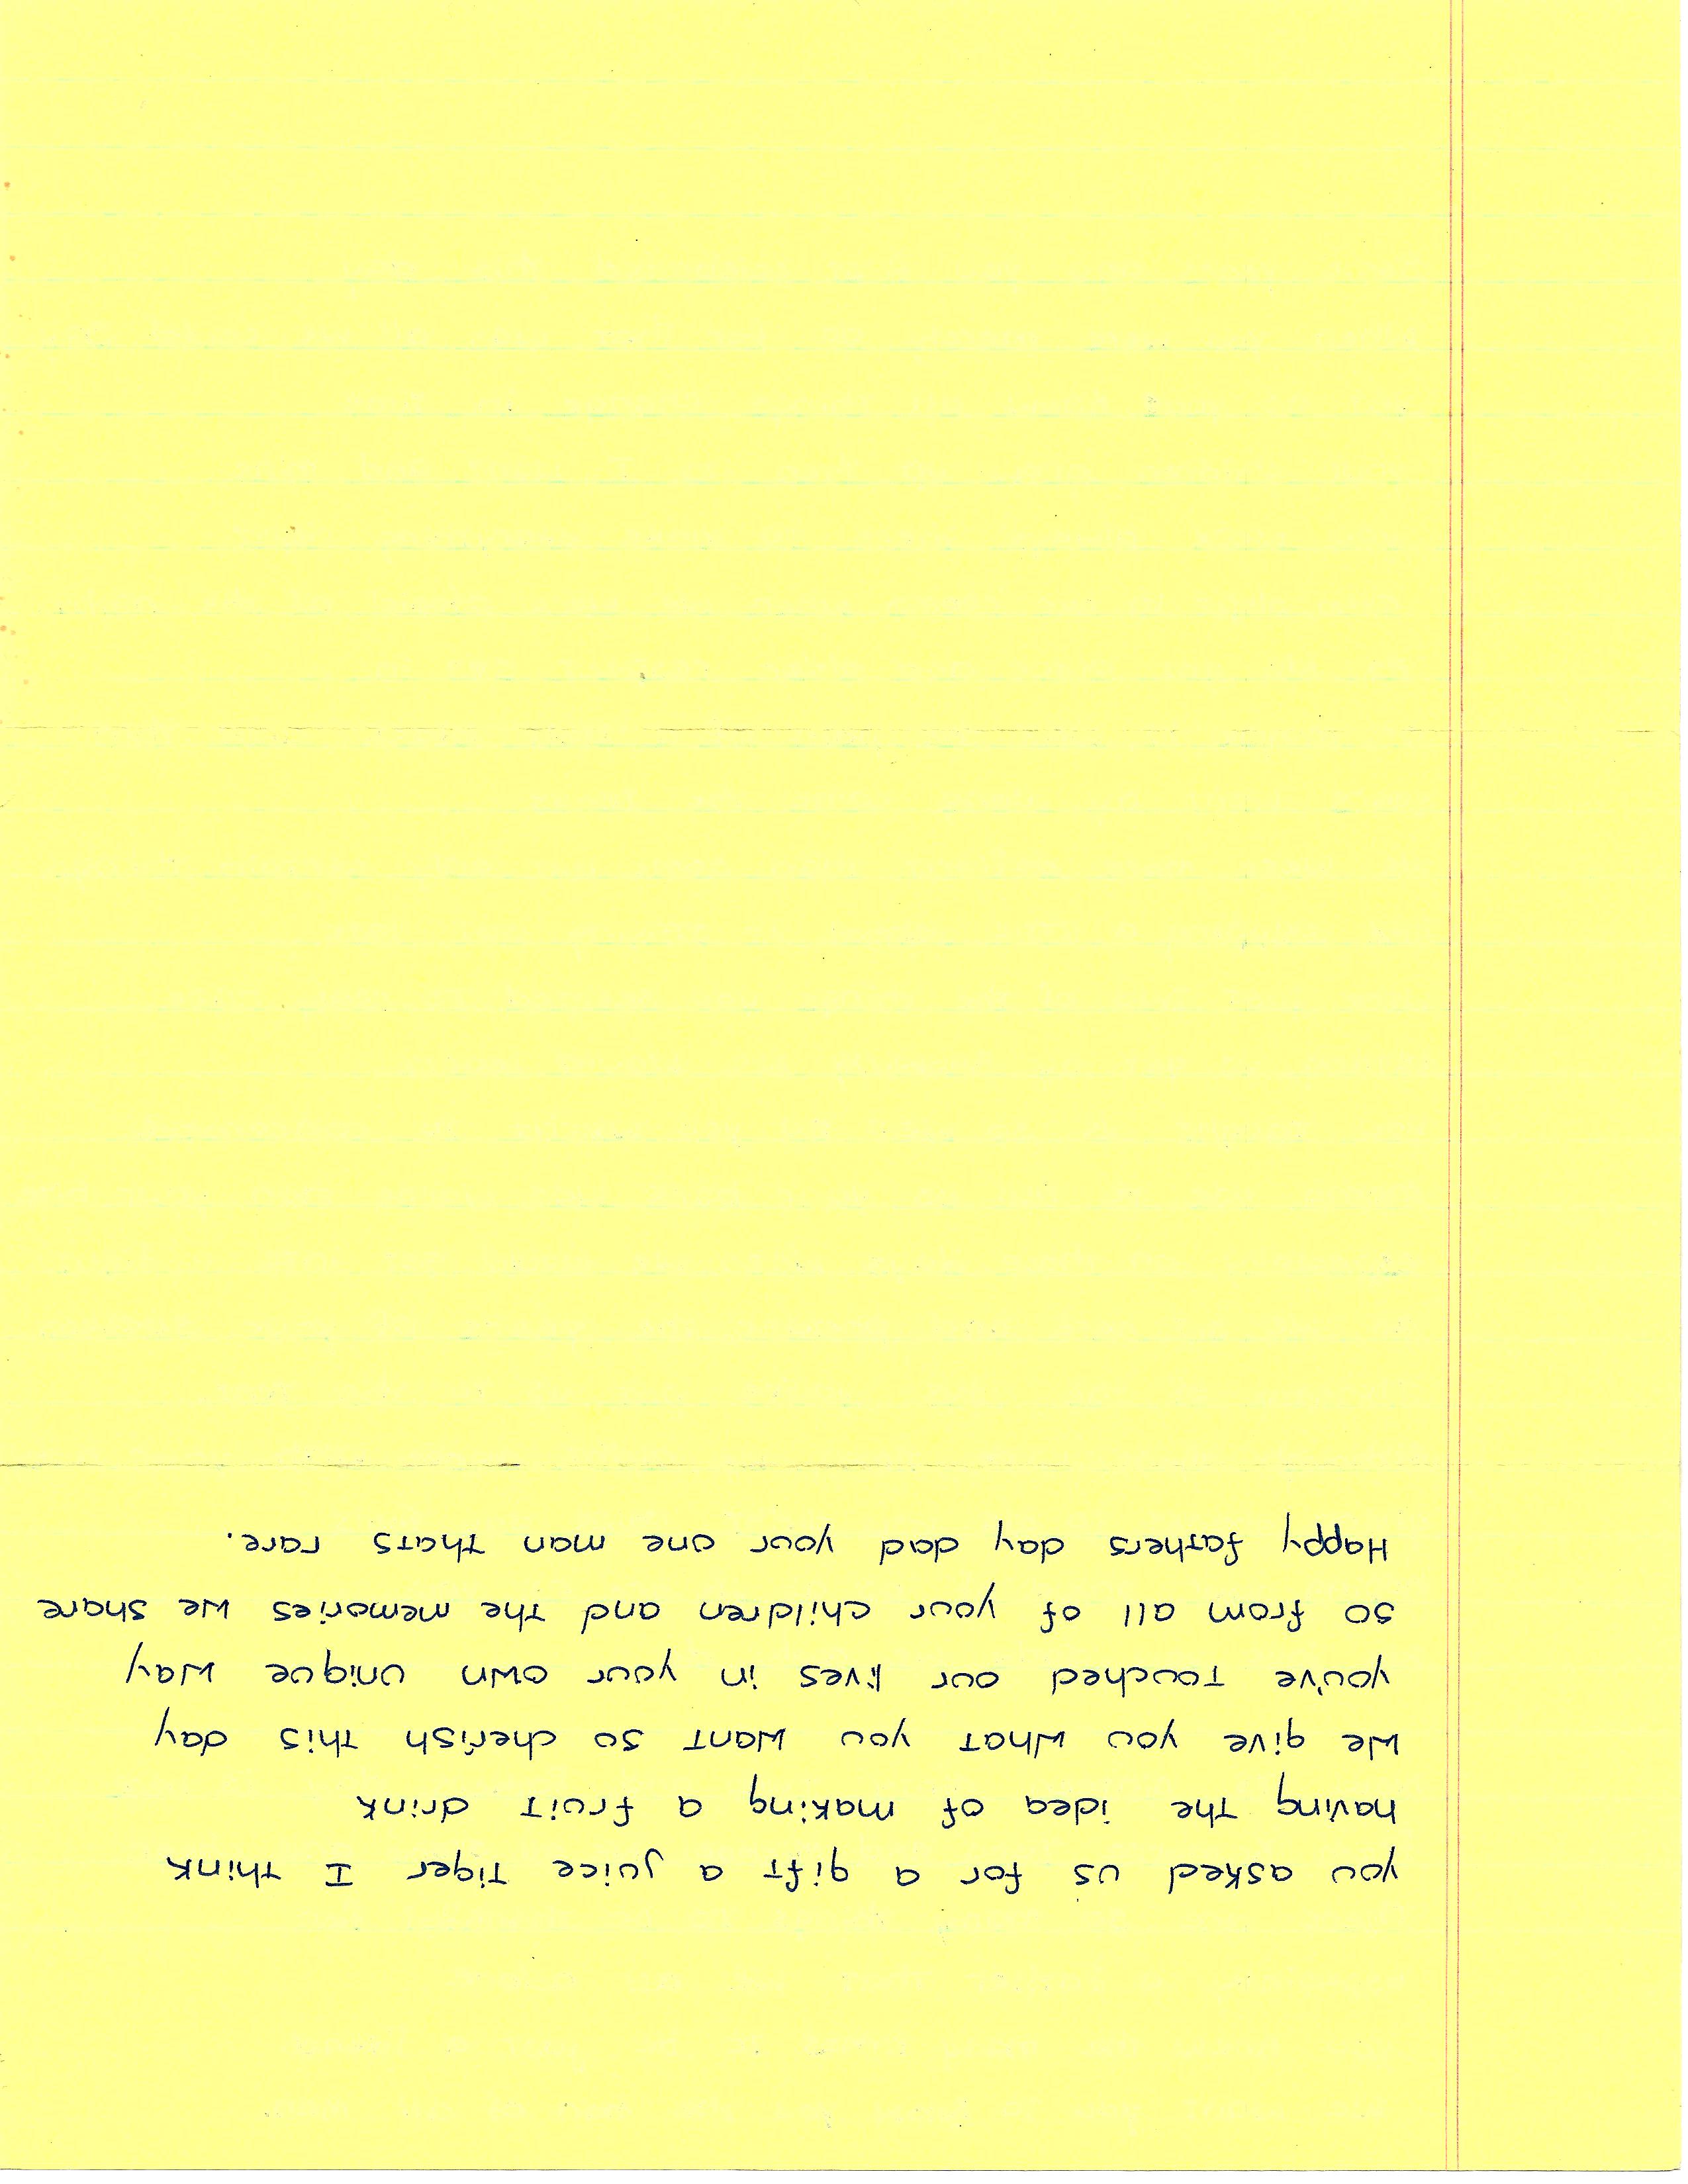 you asked us for a gift a juice Tiger I think
having the idea of making a fruit drink
we give you what you want so cherish this day
you've touched our lives in your own unique way
so from all of your children and the memories we share
Happy fathers day dad your one man thats rare.